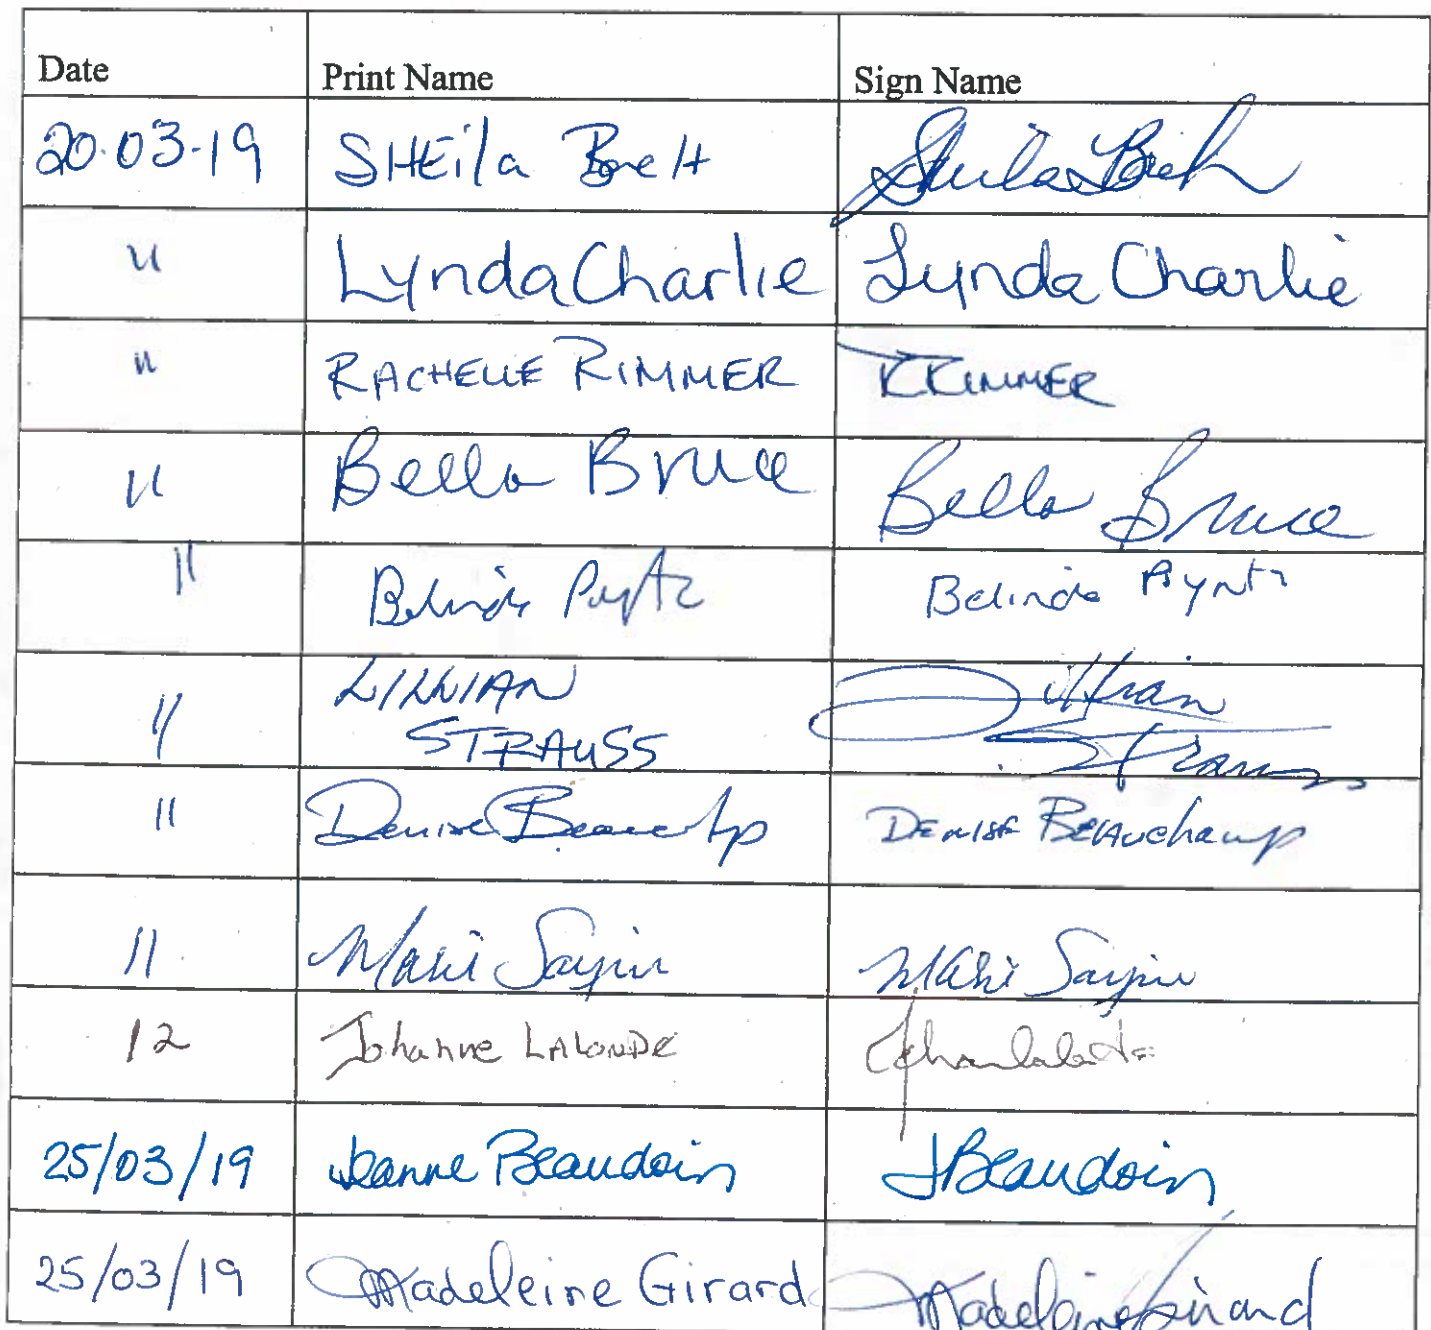 Date Print Name Sign Name
20.03-19 SHEila Brett Sheila
" Lynda Charlie Lynda Charlie
" RACHELLE RIMMER RRIMMER
" Bella Bruce Bella Bruce
" Belinda Belinda
" LILLIAN Lillian
STRAUSS Strauss
" Denise Beauchamp DENISE BEAuchamp
" Marie Marie
12 Johanne LALONDE
25/03/19 Jeanne Beaudoin JBeaudoin
25/03/19 Madeleine Girard Madeleine Girard